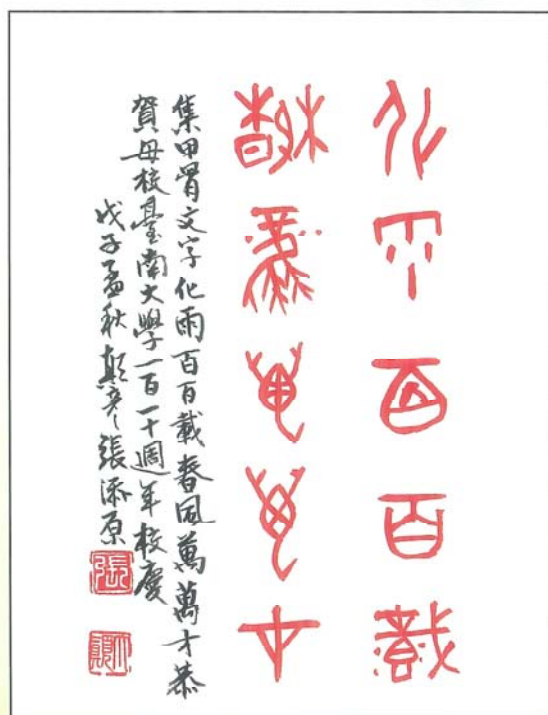 化雨百百載
春風萬萬才
集甲骨文字化雨百百載春風萬萬才恭
賀母校臺南大學一百一十週年校慶
戊子孟秋顛彥張添原
張